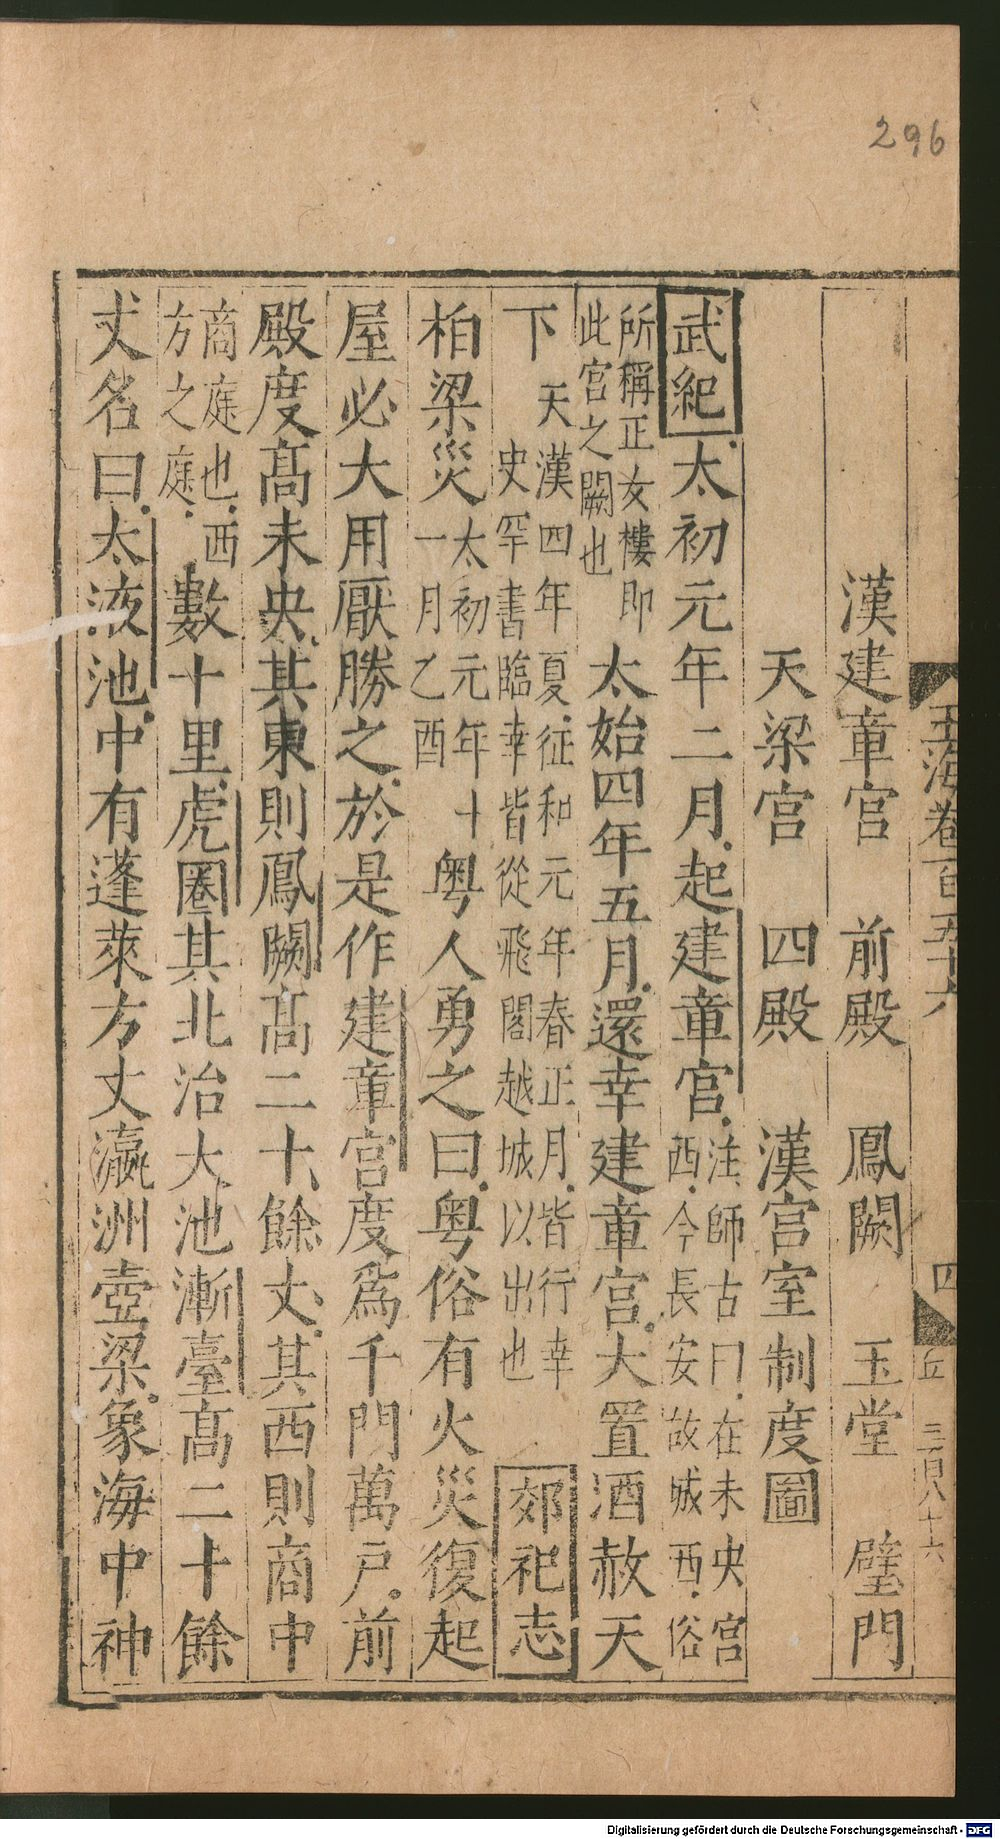 296
玉海卷一百五十六
四
丘
三百八十六
漢建章宮 前殿 鳳闕 玉堂 璧門
天梁宮 四殿 漢宮室制度圖
武紀太初元年二月起建章宮注師古曰在未央宮西今長安故城西俗
所稱正女樓即此宮之闕也太始四年五月還幸建章宮大置酒赦天
下天漢四年夏征和元年春正月皆行幸史罕書臨幸皆從飛閣越城以出也郊祀志
柏梁災太初元年十一月乙酉粤人勇之曰粤俗有火災復起
屋必大用厭勝之於是作建章宮度為千門萬户前
殿度髙未央其東則鳳闕髙二十餘丈其西則商中
商庭也西方之庭數十里虎圈其北治大池漸臺髙二十餘
丈名曰太液池中有蓬萊方丈瀛洲壺梁象海中神
Digitalisierung gefördert durch die Deutsche Forschungsgemeinschaft - DFG